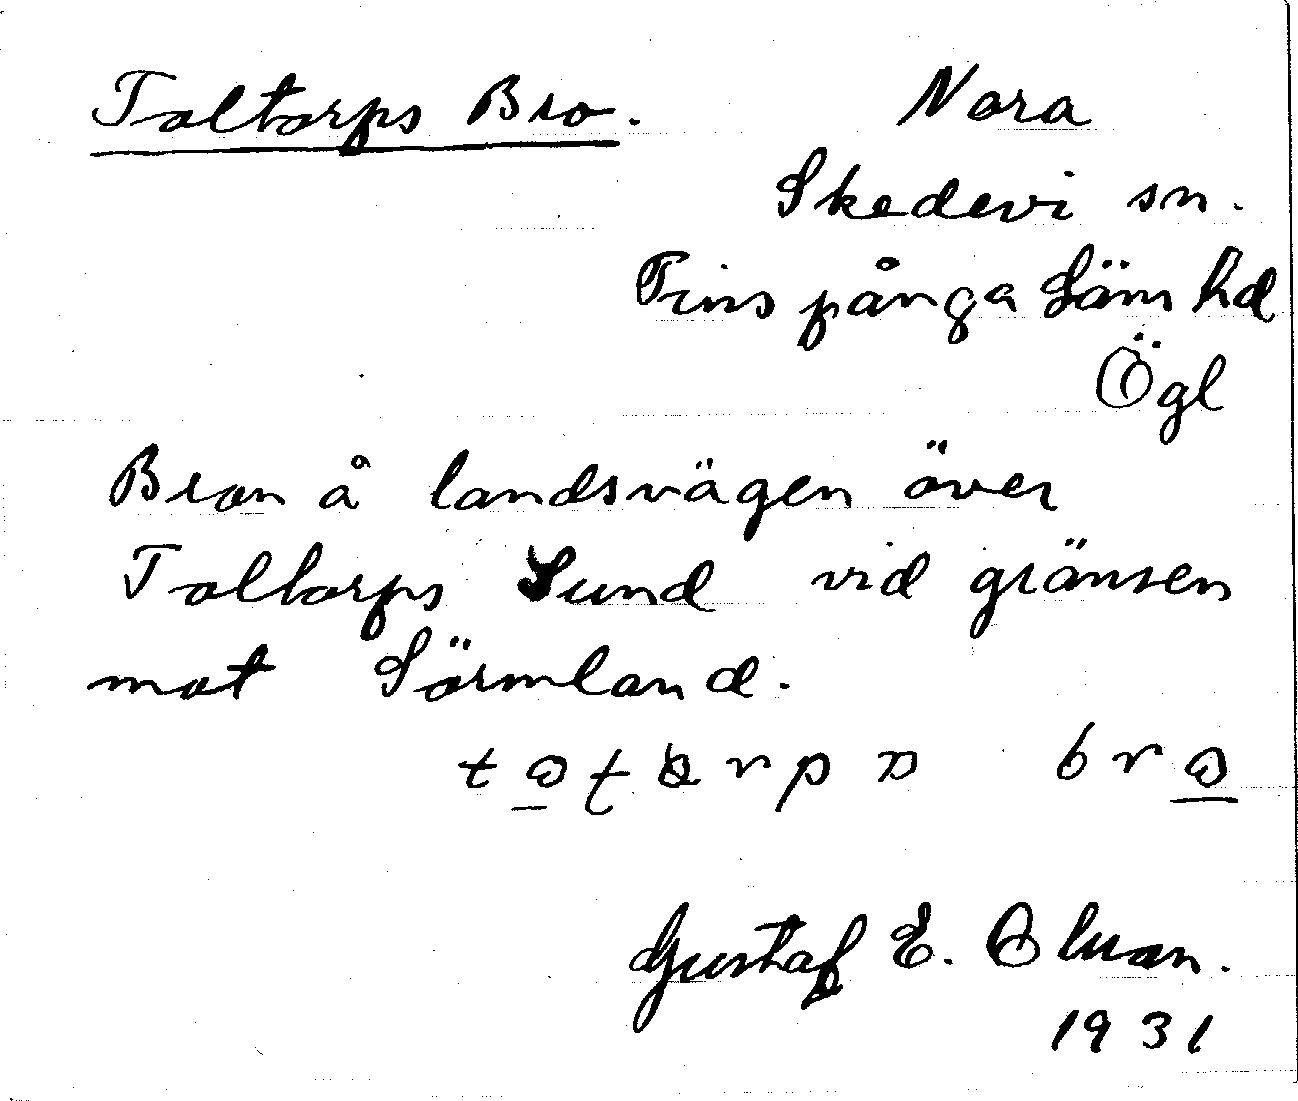 Toltorps Bro. Nora
Skedevi sn.
Finspånga Läns hd
Ögl
Bron å landsvägen över
Toltorps Sund vid gränsen
mot Sörmland.
Gustaf E. Olsson.
1931